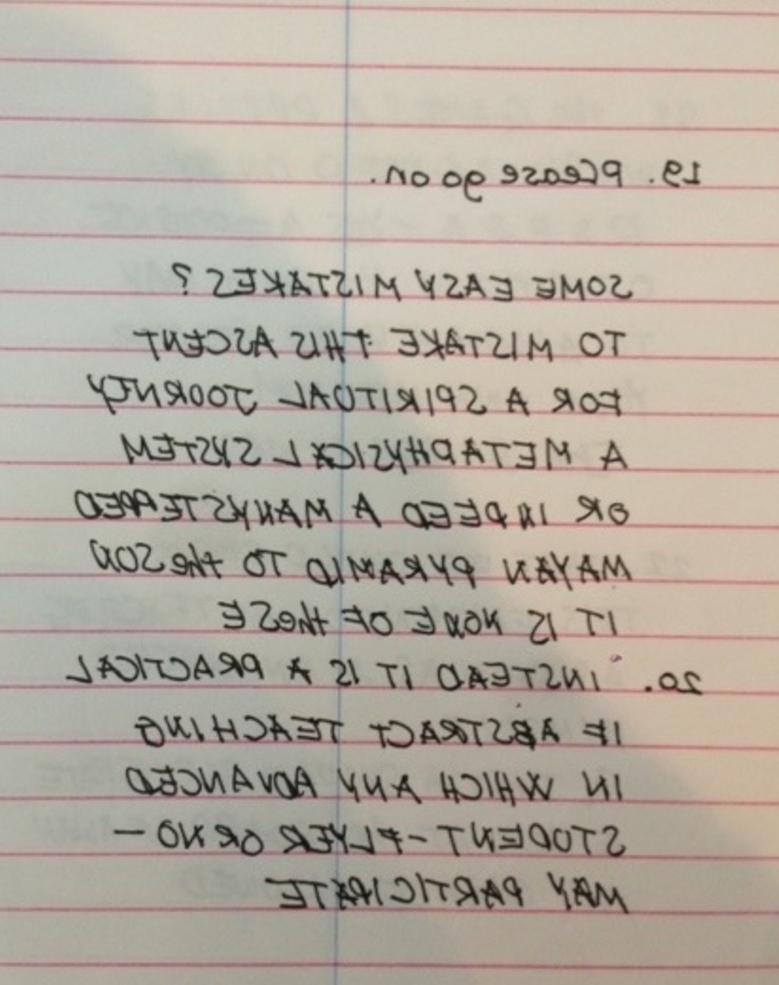 19. please go on.
SOME EASY MISTAKES?
TO MISTAKE THIS ASCENT
FOR A SPIRITUAL JOORNEY
A METAPHYSICAL SYSTEM
OR INDEED A MANYSTEPPED
MAYAN PYRAMID TO the SON
IT IS NONE OF theSE
20. INSTEAD IT IS A PRACTICAL
IF ABSTRACT TEACHING
IN WHICH ANY ADVANCED
STUDENT-FLYER OR NO-
MAY PARTICIPATE